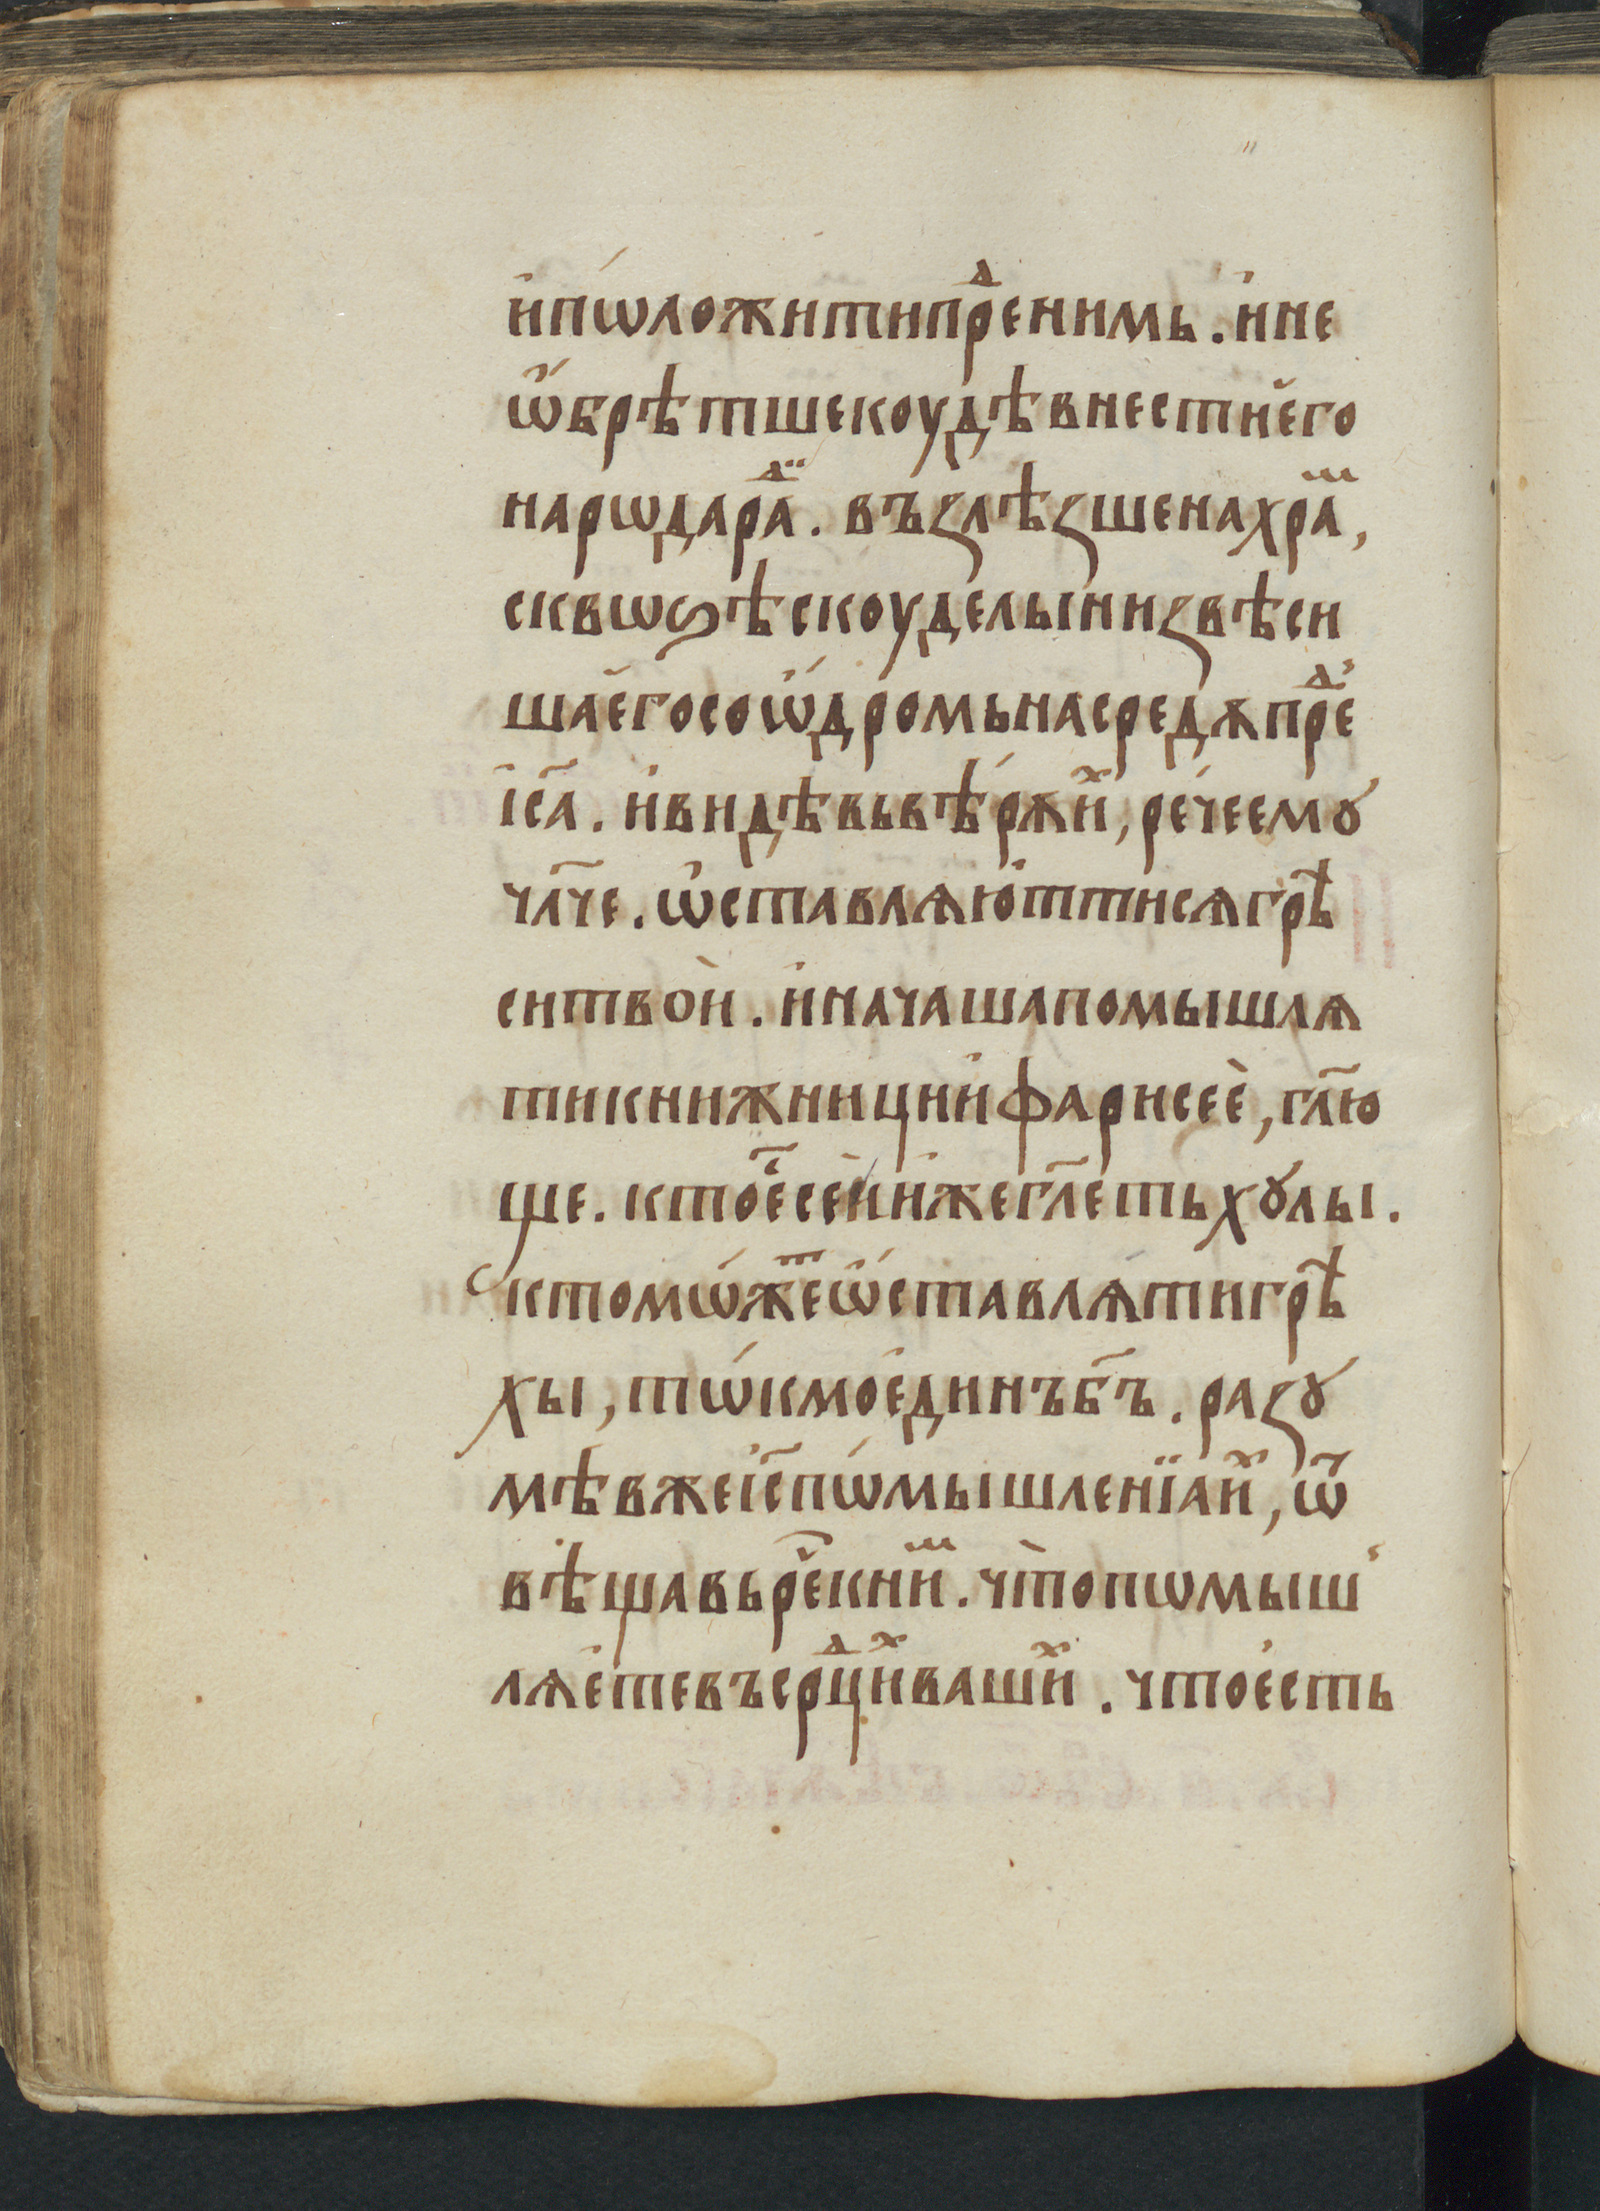 и҆пѡ́ложитипреⷣнимь. и҆не
ѡ҆́брѣтшекоудѣвнестие҆го
нарѡдараⷣ. възлѣзшенахраⷨ,
сквѡѕѣскоудельіиизвѣси
шае҆госоѡ҆́дромьнасредѧпреⷣ
і҆с҃а. и҆видѣвьвѣ́рѫиⷯ, ре́чеемꙋ
чл҃че. ѡ҆ставлѧю҆ттисѧгрѣ
ситвоѝ. и҆начашапомышлѧ
тикнижниции҆фарисеѐ, гл҃ю
ще. ктоеⷭ҇сеи҆и҆жегл҃етьхꙋлы.
ктомѡ́жеⷮѡ҆́ставлѧ́тигрѣ
хы, тѡ́кмое҆динъб҃ъ. разꙋ
мѣвжеі҆с҃пѡ́мышленїаиⷯ, ѿ
вѣщавьре́книⷨ. что̀пѡмыш
лѧе҆тевъсрⷣциⷯвашиⷯ. чтое҆сть